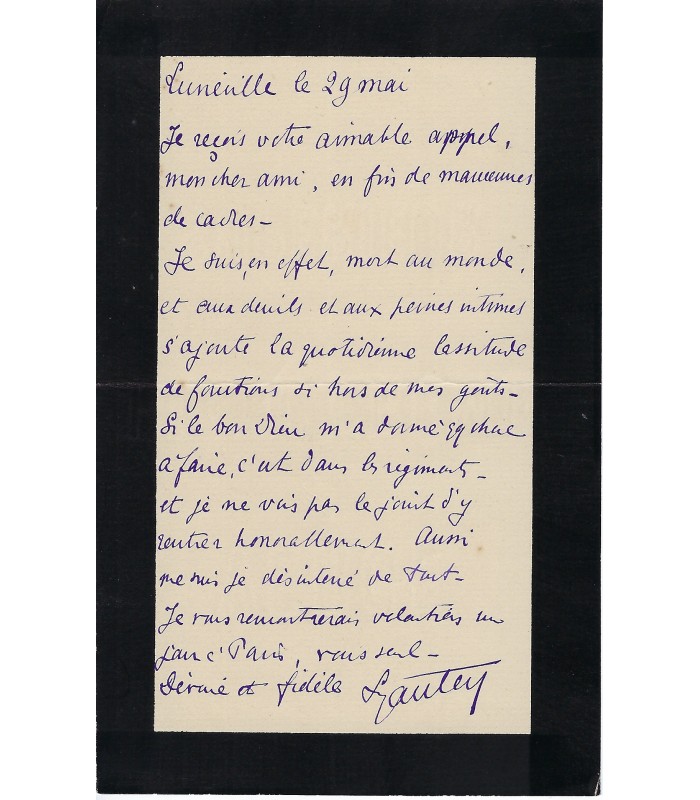 Lunéville le 29 mai
Je reçois votre aimable appel,
mon cher ami, en fin de manœuvres
de cadres –
Je suis, en effet, mort au monde,
et aux deuils et aux peines intimes
s'ajoute la quotidienne lassitude
de fonctions si hors de mes goûts –
Si le bon Dieu m'a donné qq chose
à faire, c'est dans les régiments –
et je ne vois pas le joint d'y
rentrer honorablement. Aussi
me suis je désintéréssé de tout –
Je vous rencontrerais volontiers un
jour à Paris, vous seul –
Dévoué et fidèle Lyautey